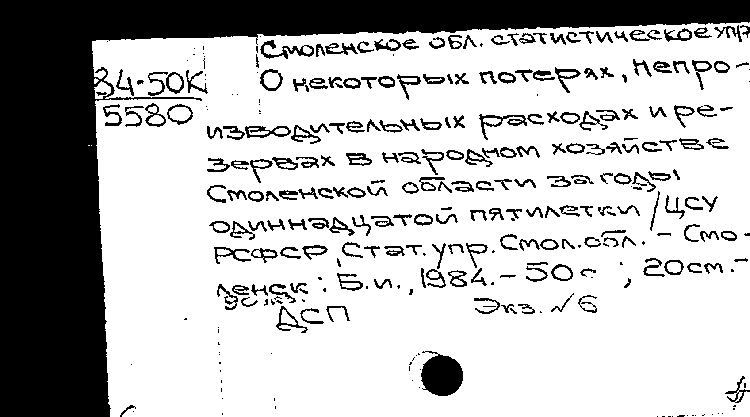 Смоленское обл. статистическое упр
84-50К
5580
О некоторых потерях, непро-
изводительных расходах и ре-
зервах в народном хозяйстве
Смоленской области за годы
одиннадцатой пятилетки / ЦСУ
РСФСР, Стат. упр. Смол. обл. - Смо-
ленск : Б.и., 1984. - 50 с ; 20 см. -
90 экз.
ДСП Экз. № 6